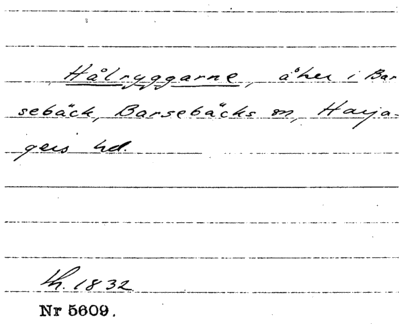 Hålryggarne, åker i Bar
sebäck, Barsebäcks sn, Harja-
gers hd.
Kh. 1832
Nr 5609.